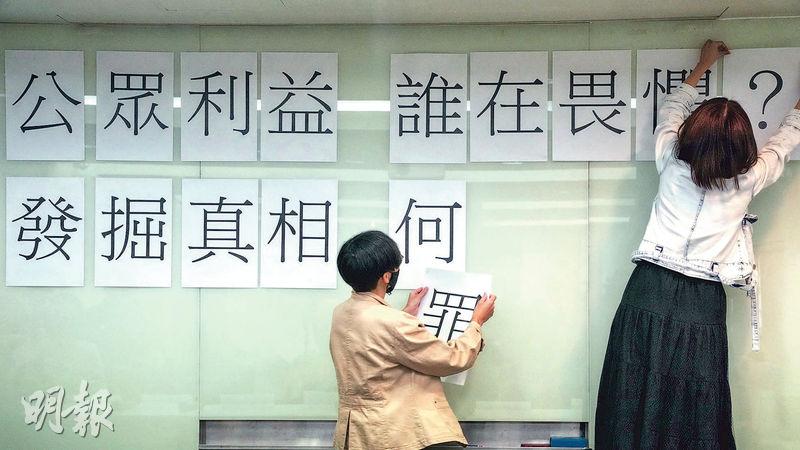 公眾利益 誰在畏懼？
發掘真相 何罪
明報